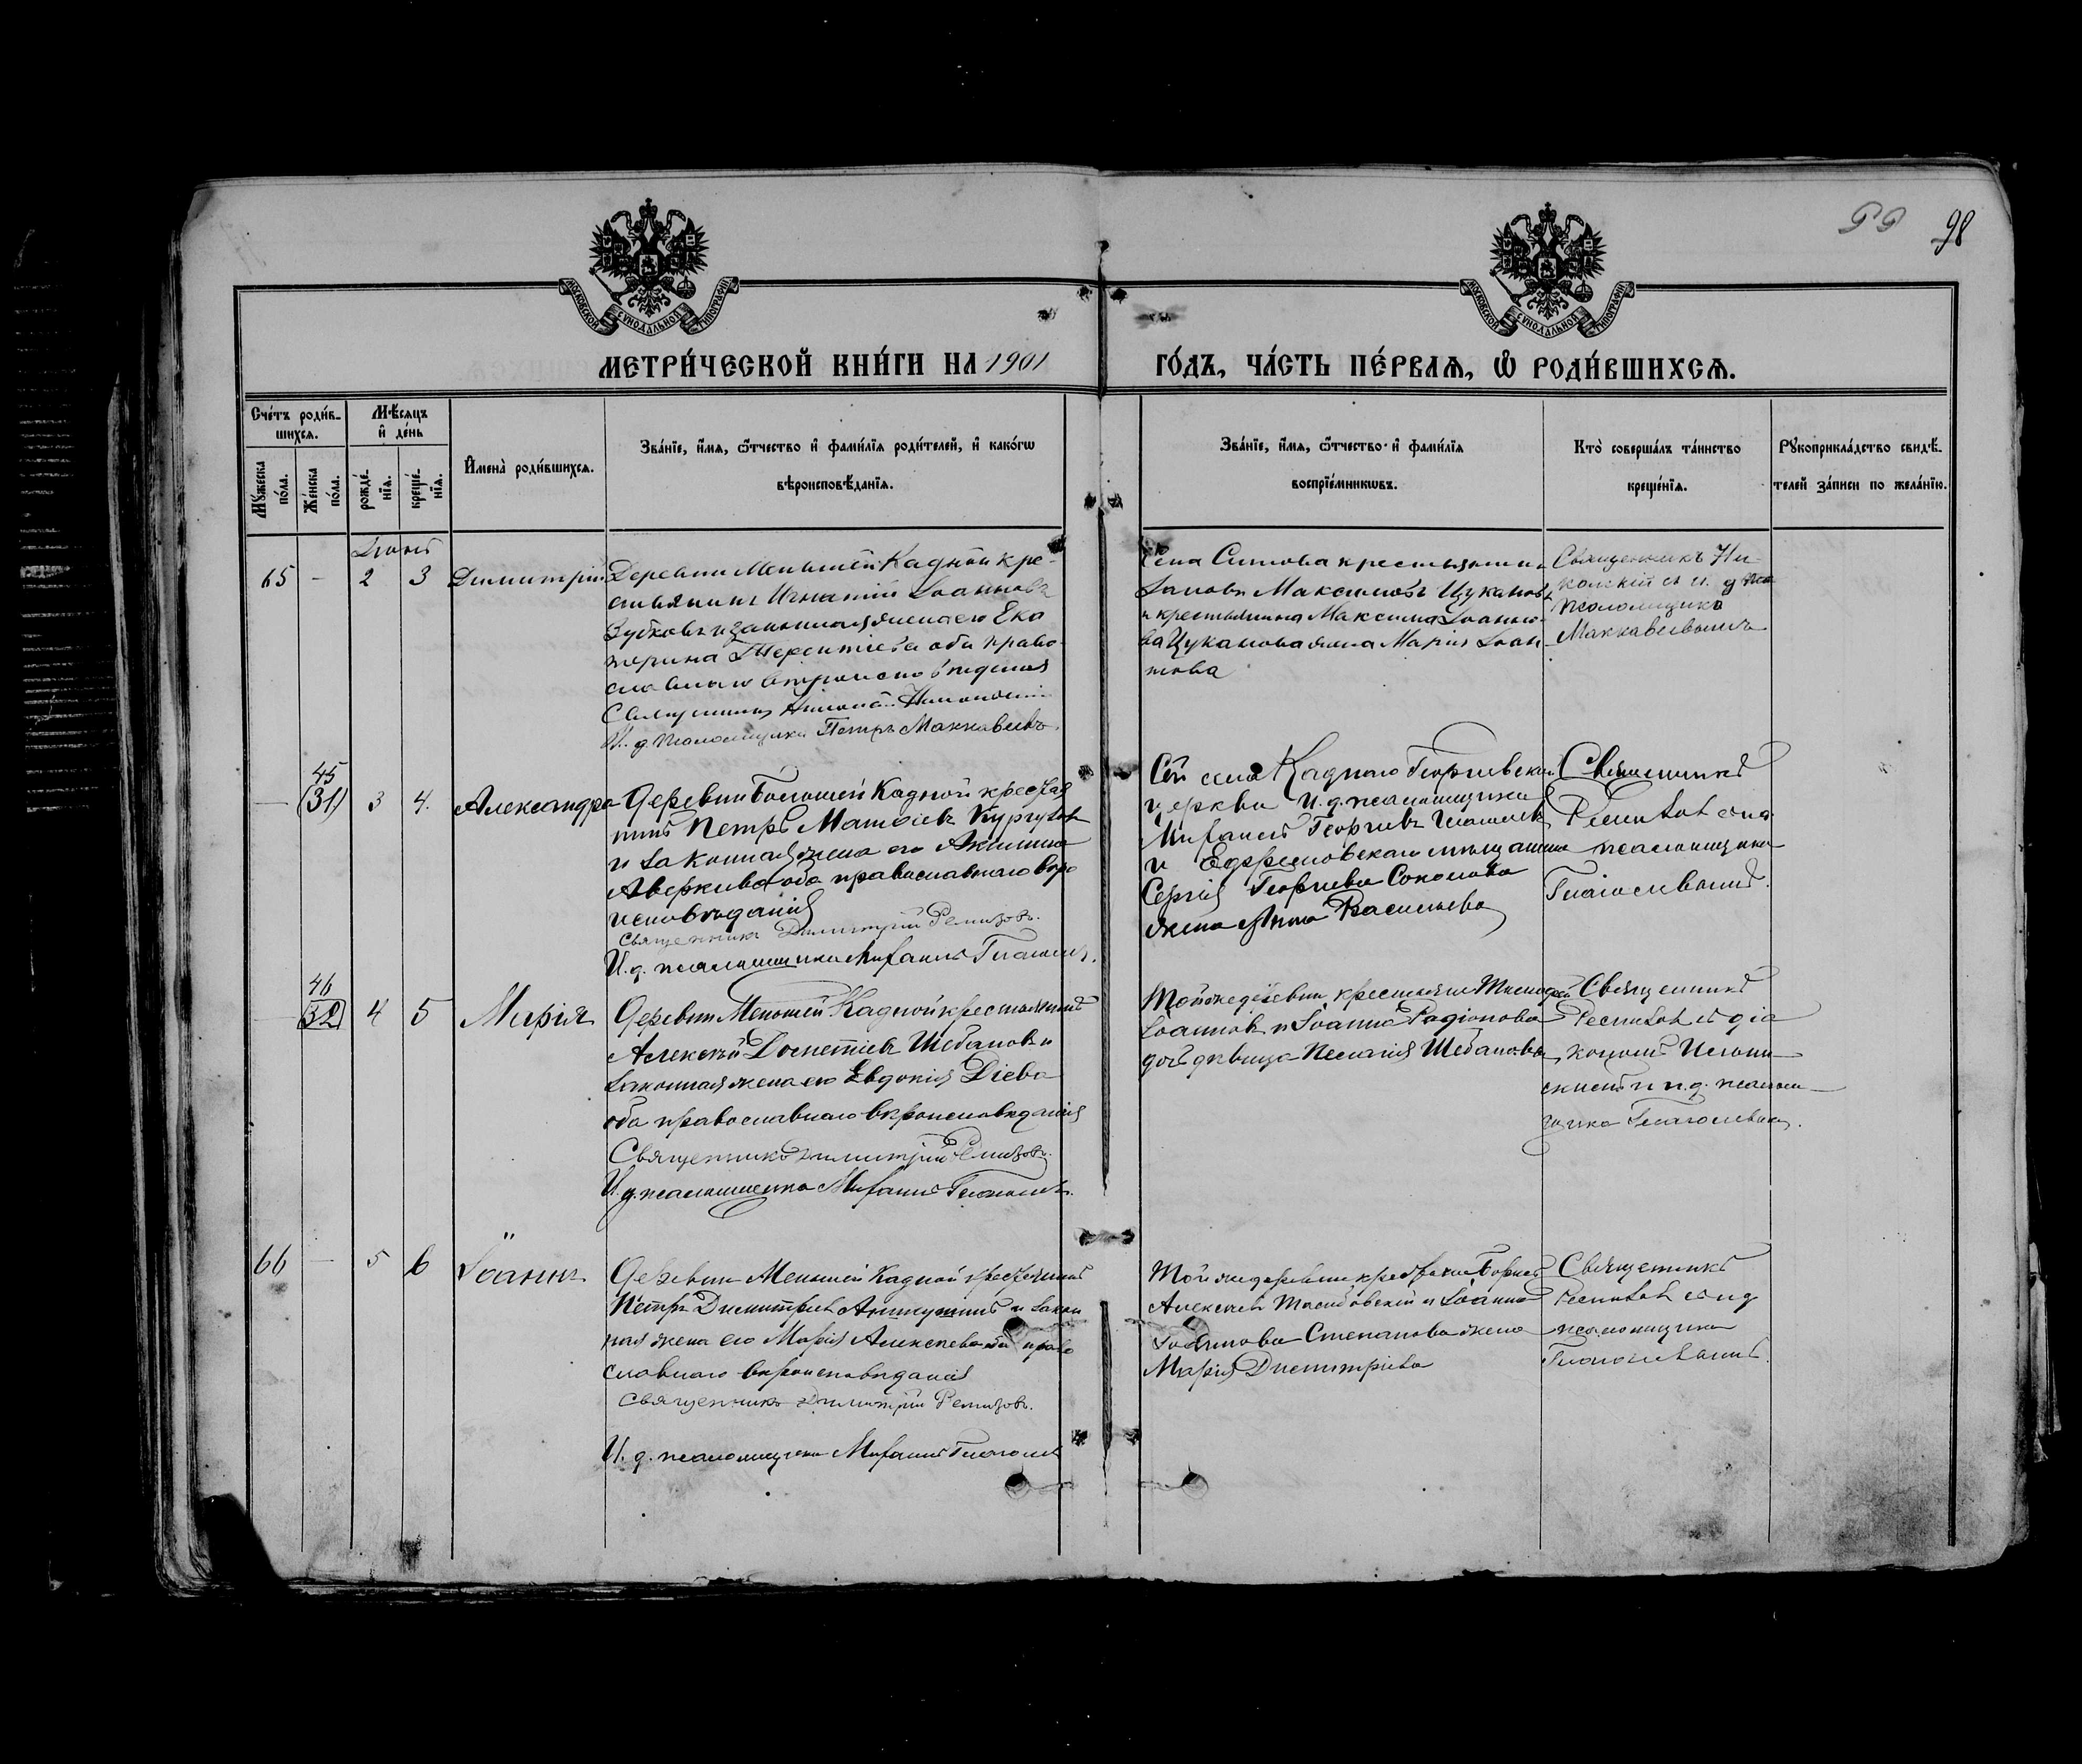 99 98
МОСКОВСКОЙ СУНОДАЛЬНОЙ ТИПОГРАФІИ
МОСКОВСКОЙ СУНОДАЛЬНОЙ ТИПОГРАФІИ
МЕТРИ́ЧЕСКОЙ КНИ́ГИ НА 1901 ГО́ДЪ, ЧА́СТЬ ПЕ́РВАѦ, Ѡ҆ РОДИ́ВШИХСѦ.
Сче́тъ роди́в-
шихсѧ.
Мꙋ́жеска
по́ла.
Же́нска
по́ла.
Мѣ́сяцъ
и҆ де́нь
рожде́-
нїѧ.
креще́-
нїѧ.
И҆мена̀ роди́вшихсѧ.
Зва́нїе, и҆́мѧ, ѻ҆́тчество и҆ фами́лїѧ роди́телей, и҆ како́гѡ
вѣроисповѣ́данїѧ.
Зва́нїе, и҆́мѧ, ѻ҆́тчество и҆ фами́лїѧ
воспрїе́мникѡвъ.
Кто̀ соверша́лъ та́инство
креще́нїѧ.
Рꙋкоприкла́дство свидѣ́-
телей за́писи по жела́нїю.
65 - 2 3 Димитрій
Деревни Меньшей Кадной кре-
стьянинъ Игнатій Іоанновъ
Зубковъ и законная жена его Ека
терина Терентіева оба право-
славнаго вѣроисповѣданія
Священникъ Николай
И. д. псаломщика Петръ Маккавеевъ.
Села Ситова крестьянинъ
Максимовъ Цукановъ
и крестьянина Максима Іоанно-
ва Цуканова жена Марія Іоан
нова
Священникъ Ни-
кольскій съ и. д. пса
псаломщика
Маккавеевымъ
45
— (31) 3 4. Александра
Деревни Большой Кадной крестья
нинъ Петръ Матвѣевъ
и законная жена его Акилина
Аверкиева оба православнаго вѣро
исповѣданія
Священникъ Димитрій Ремизовъ.
И. д. псаломщика Митрофанъ Глаголевъ.
села Кадного Георгіевской
церкви И. д. псаломщика
Митрофанъ Георгіевъ Глаголевъ
и Ефремовскаго мѣщанина
Сергія Георгіева Соколова
жена Анна Васильева
Священникъ
Ремизовъ съ и д
псаломщика
Глаголевымъ.
46
32 4 5 Марія
Деревни Меньшей Кадной крестьянинъ
Алексѣй Шебановъ и
законная жена его Евдокія
оба православнаго вѣроисповѣданія
Священникъ Димитрій Ремизовъ.
И. д. псаломщика Митрофанъ Глаголевъ.
Той же деревни крестьяне Тимофей
Іоанновъ и Іоанна Родіонова
дочь дѣвица Пелагія Шебановы
Священникъ
Ремизовъ съ діа
кономъ
и и. д. псалом-
щика Глаголевымъ.
66 — 5 6 Іоаннъ
Деревни Меньшей Кадной крестьянинъ
Петръ Димитріевъ и закон
ная жена его Марія Алексѣева оба право
славнаго вѣроисповѣданія
Священникъ Димитрій Ремизовъ.
И. д. псаломщика Митрофанъ Глаголевъ
Той же деревни крестьяне Борисъ
Алексѣевъ и Іоанна
Степанова жена
Марія Димитріева
Священникъ
Ремизовъ съ и д
псаломщика
Глаголевымъ.